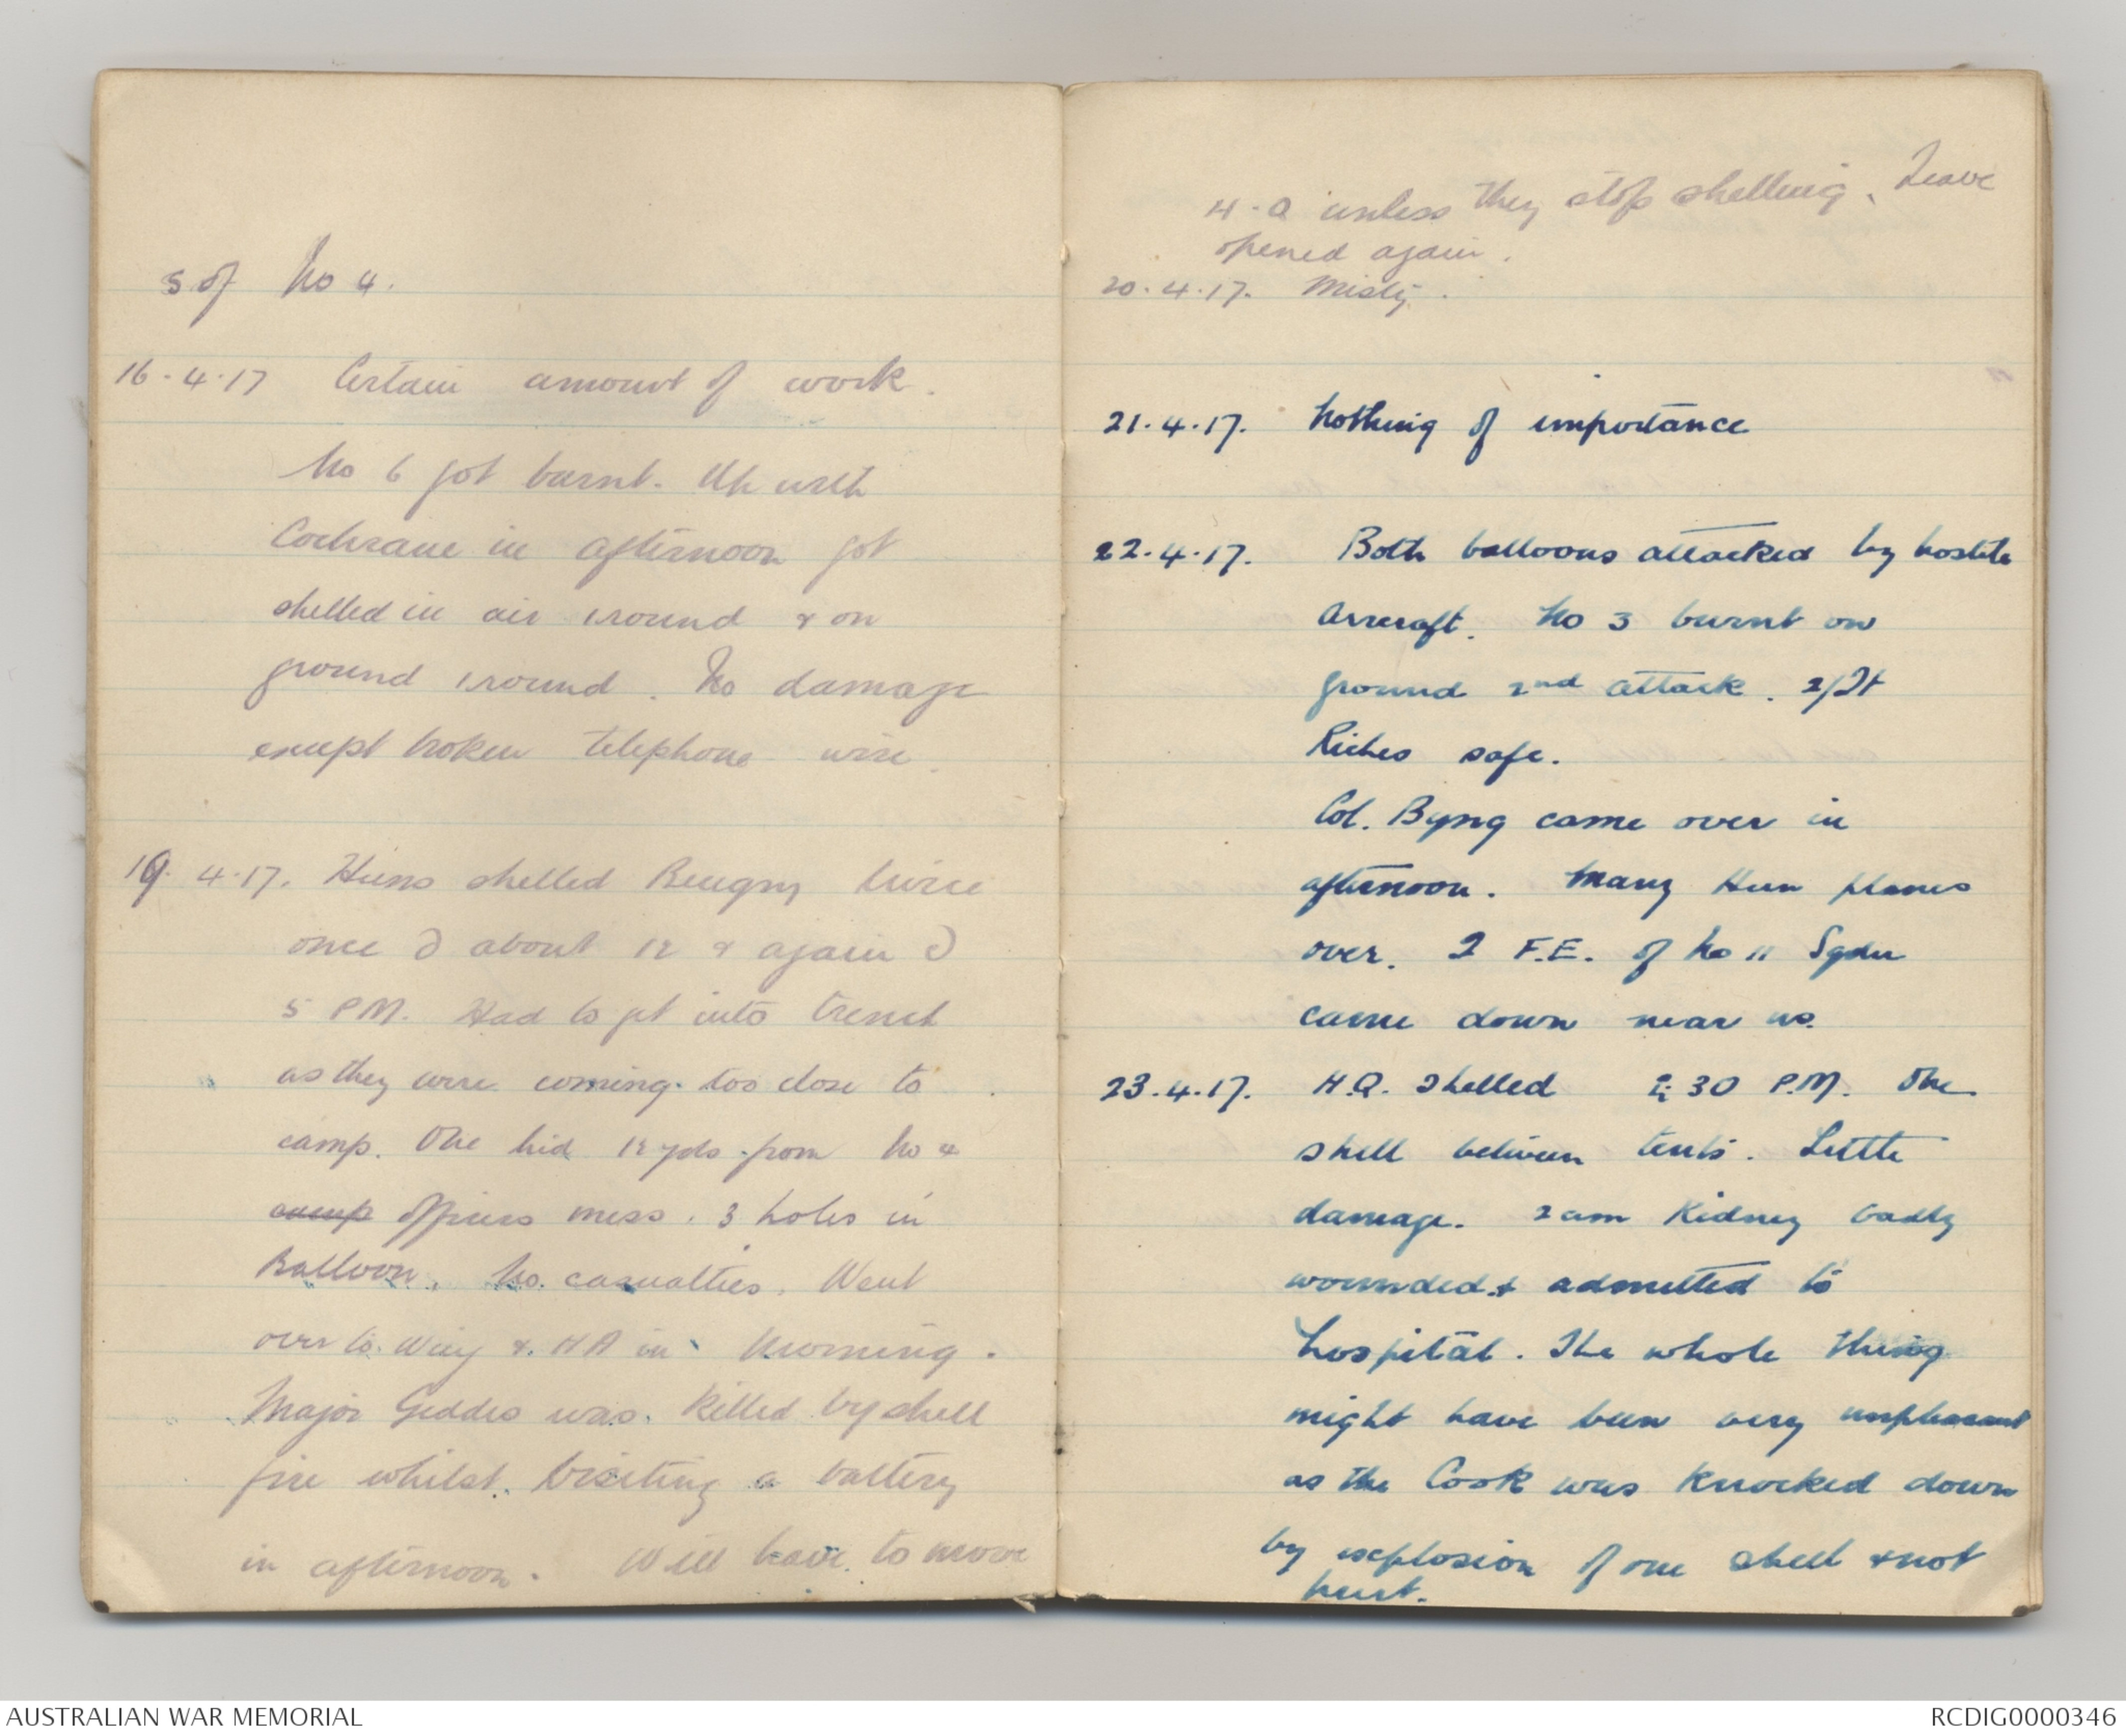 5 of No 4.
16.4.17 Certain amount of work.
No 6 got burnt. Up with
Cochrane in afternoon got
shelled in air 1 round & on
ground 1 round. No damage
except broken telephone wire.
19.4.17. Huns shelled Beugny twice
once @ about 12 & again @
5 PM. Had to get into trench
as they were coming too close to
camp. One hid 12 yds from No 4
camp officers mess. 3 holes in
Balloon. No casualties. Went
over to Wing & HA in morning.
Major Geddes was killed by shell
fire whilst visiting a battery
in afternoon. Will have to move
H.Q unless they stop shelling. Leave
opened again.
20.4.17. Misty.
21.4.17. Nothing of importance
22.4.17. Both balloons attacked by hostile
Aircraft. No 3 burnt on
ground 2nd attack. 2/Lt
Riches safe.
Col. Byng came over in
afternoon. Many Hun planes
over. 2 F.E. of No 11 Sqdn
came down near us.
23.4.17. H.Q. Shelled 2:30 P.M. One
shell between tents. Little
damage. 2am Kidney badly
wounded & admitted to
hospital. The whole thing
might have been very unpleasant
as the Cook was knocked down
by explosion of one shell & not
hurt.
AUSTRALIAN WAR MEMORIAL
RCDIG0000346